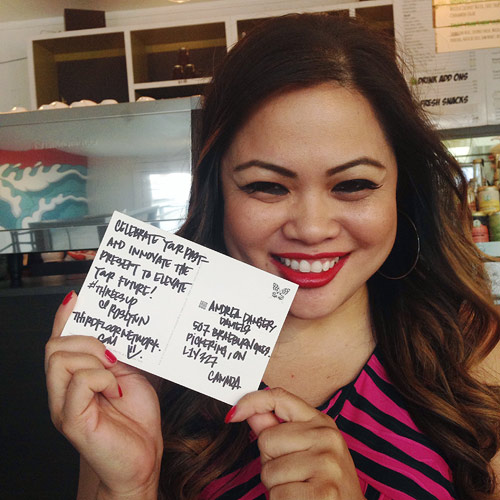 DRINK ADD ONS
FRESH SNACKS
CELEBRATE YOUR PAST
AND INNOVATE THE
PRESENT TO ELEVATE
YOUR FUTURE!
#THREESUP
@
THIRDFLOORNETWORK.
COM
ANDREA
DANIELS
507
PICKERING, ON
L1V
CANADA